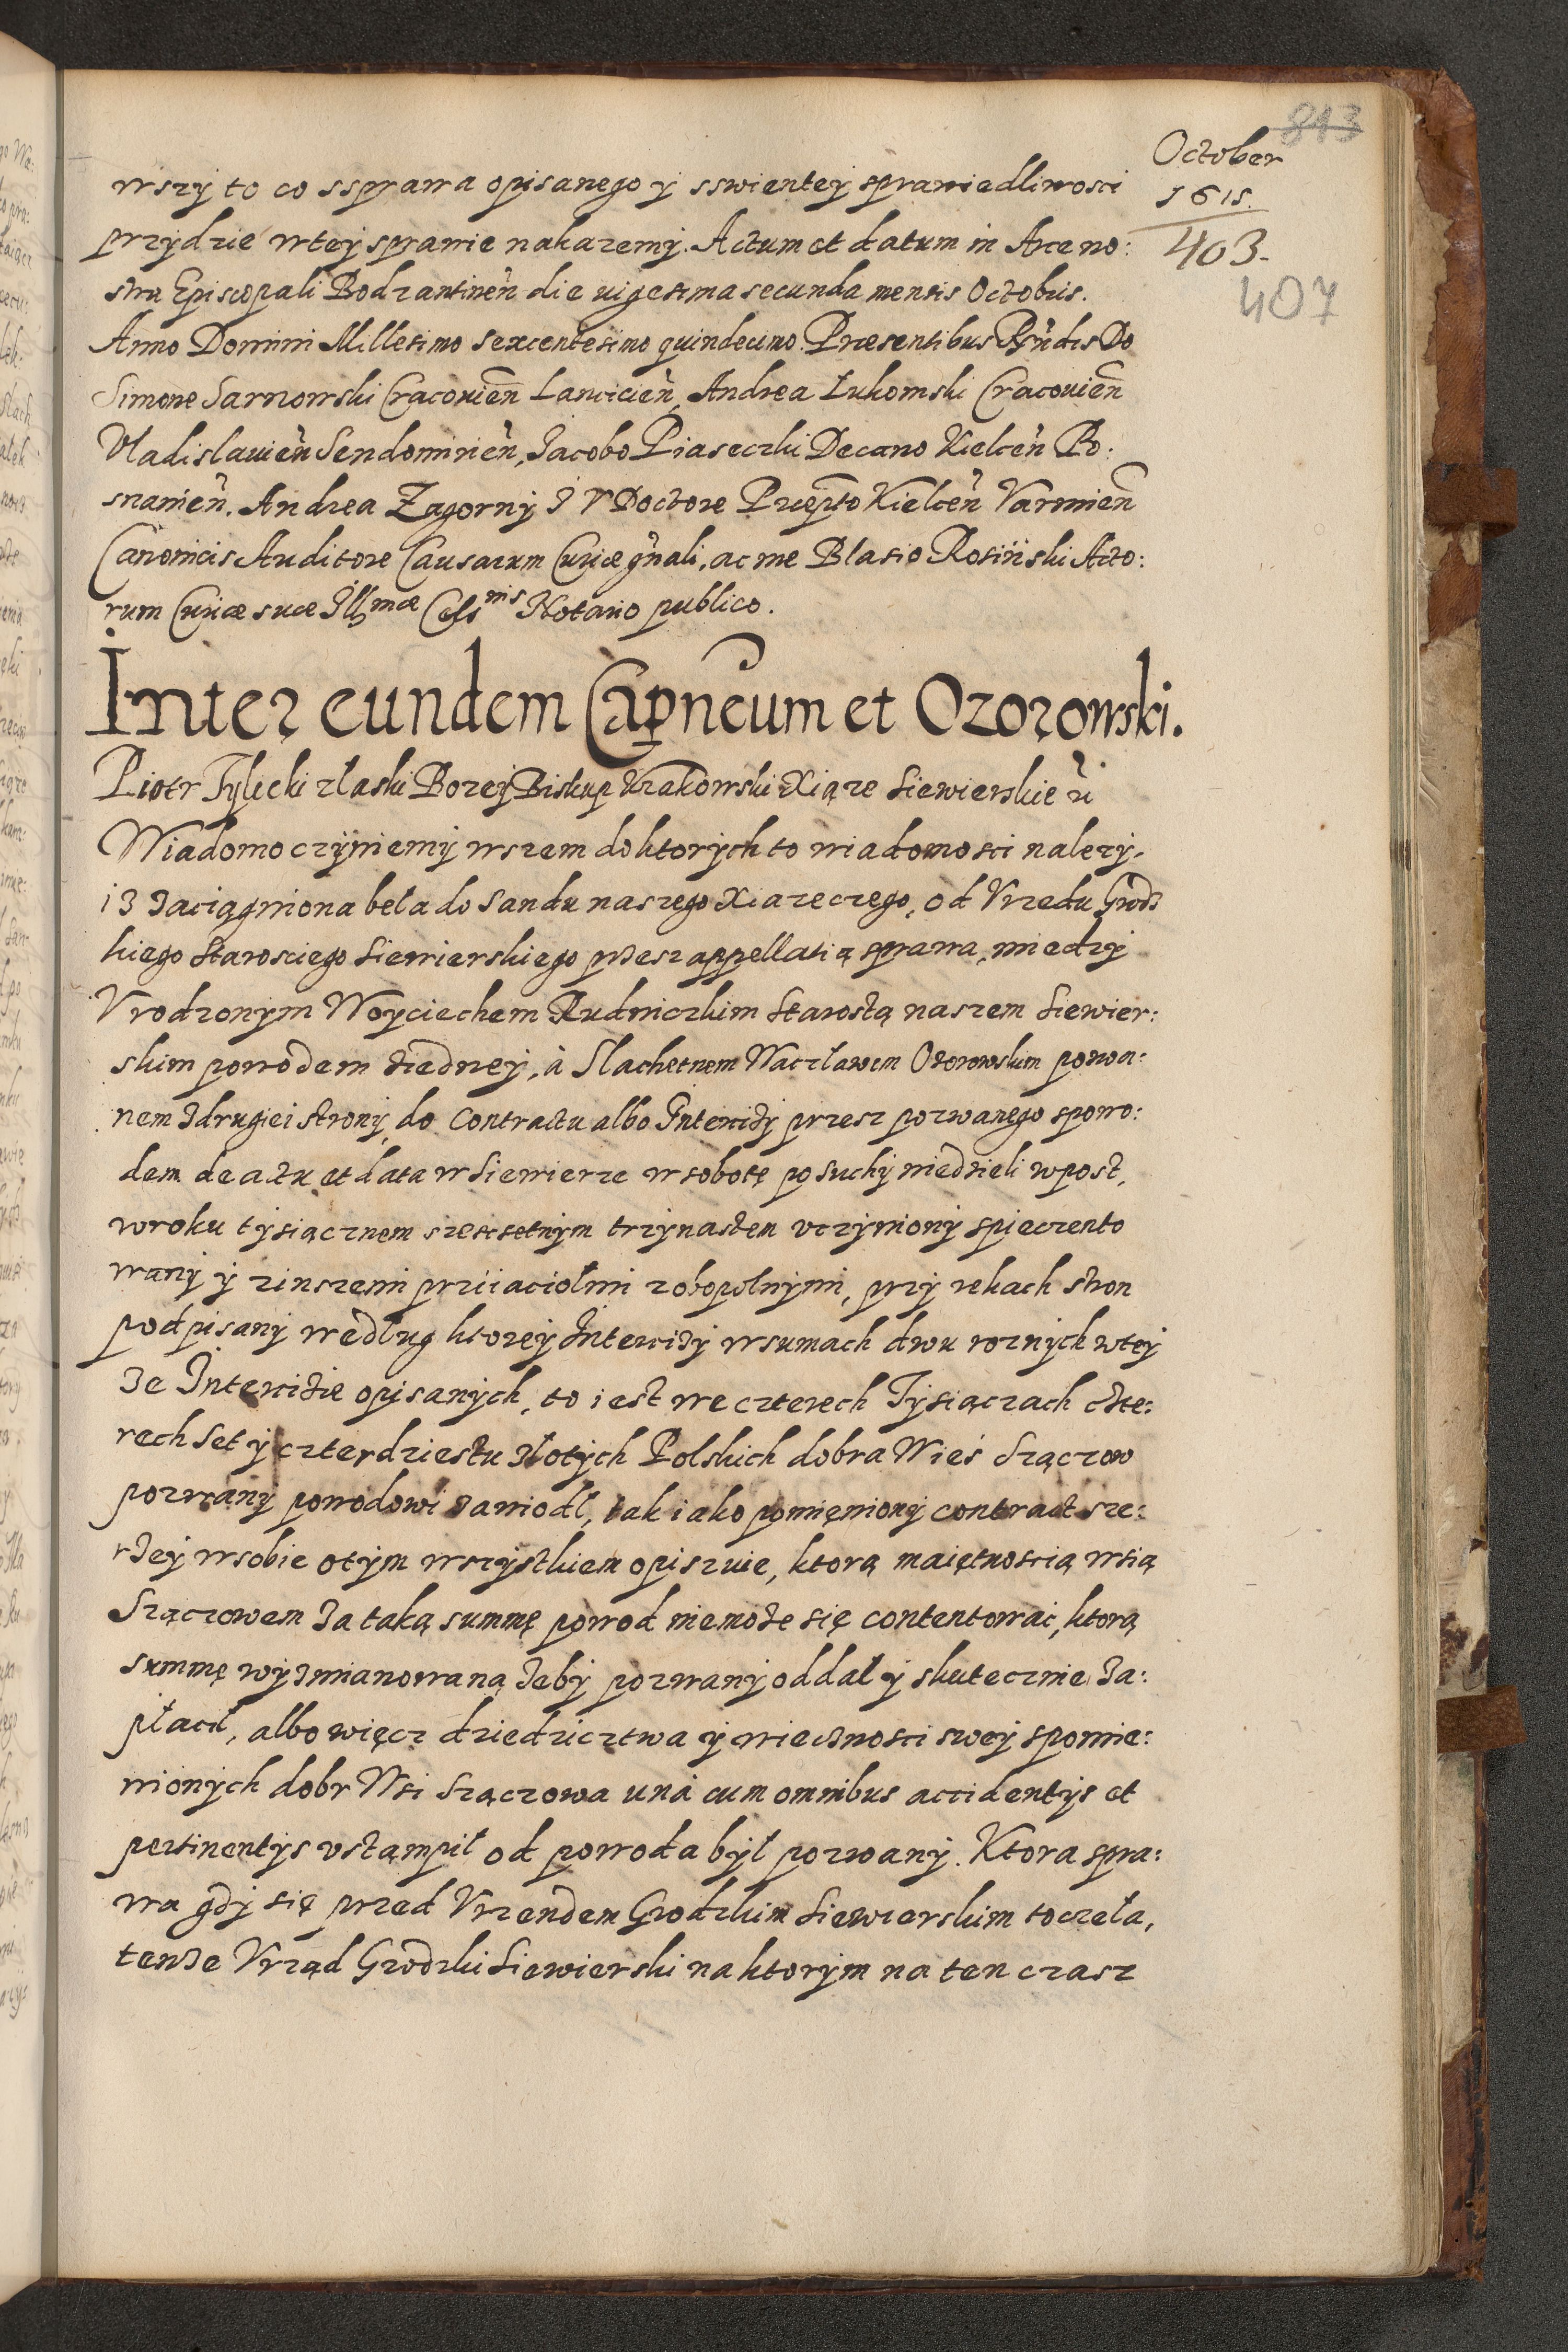 813
October
1615.
403.
407
wszÿ to co ssprawa opisanego ÿ sswientey sprawiedliwosci
przÿdzie wteÿ sprawie nakazemÿ. Actum et datum in Arce no:
stra Episcopali Bodzantinen̄ die uigesima secunda mensis Octobris.
Anno Domini Millesimo Sexcentesimo quindecimo. Præsentibus Rn̄dis Do
Simone Sarnowski Cracouien̄ Lancicien̄, Andrea Lukomski Cracouien̄
Vladislauien̄ Sendomirien̄, Jacobo Piaseczki Decano Kielcen̄ Po:
snanien̄. Andrea Zagornÿ J V Doctore Præpto Kielcen̄ Varmien̄
Canonicis Auditore Causarum Curiæ gn̄ali, ac me Blasio Rosiński Acto:
rum Curiæ suæ Illmæ Celsnis Notario publico.
Inter eundem Capneum et Ozorowski.
Piotr Tÿlicki zlaski Bozeÿ Biskup Krakowski Xiąze Siewierskie ū
Wiadomo czÿniemÿ wszem doktorÿch to wiadomosci nalezÿ,
iz zaciągniona beła do Sandu naszego Xiazeczego, od Vrzedu Grodz
kiego Starosciego Siewierskiego przesz appellatią sprawa, miedzÿ
Vrodzonÿm Woÿciechem Rudniczkim Starostą naszem Siewier:
skim powodem ziedneÿ, à Slachetnem Waczławem Ozorowskim pozwa:
nem zdrugiei stronÿ, do Contractu albo Intercizÿ przesz pozwanego spowo:
dem de actu et data w Siewierze w sobotę po suchÿ niedzieli w post,
wroku tÿsiącznem szescsetnÿm trzÿnastem vczÿnionÿ spieczento
wanÿ ÿ zinszemi przÿiaciołmi zobopolnÿmi, przÿ rekach stron
podpisanÿ według ktoreÿ Intercizÿ wsumach dwu roznÿch wteÿ
ze Intercizie opisanÿch, to iest we czterech Tÿsiączach czte:
rech Set ÿ czterdziestu złotÿch Polskich dobra Wieś Szączow
pozwanÿ powodowi zawiodł, tak iako pomięnionÿ contract sze:
rzeÿ wsobie otÿm wszÿstkiem opiszuie, ktorą maiętnoscią wsią
Szączowem za taką summę powod niemoze się contentowac, ktorą
summę wÿzmianowaną zebÿ pozwanÿ oddał ÿ skutecznie za:
płacił, albo więcz dziedzicztwa ÿ wiecznosci sweÿ spomie:
nionÿch dobr Wsi Szączowa unà cum omnibus accidentÿs et
pertinentÿs vstąmpił od powoda bÿł pozwanÿ. Ktora spra:
wa gdÿ się przed Vrzendem Grodzkim Siewierskim toczeła,
tenze Vrząd Grodzki Siewierski na ktorÿm na ten czasz